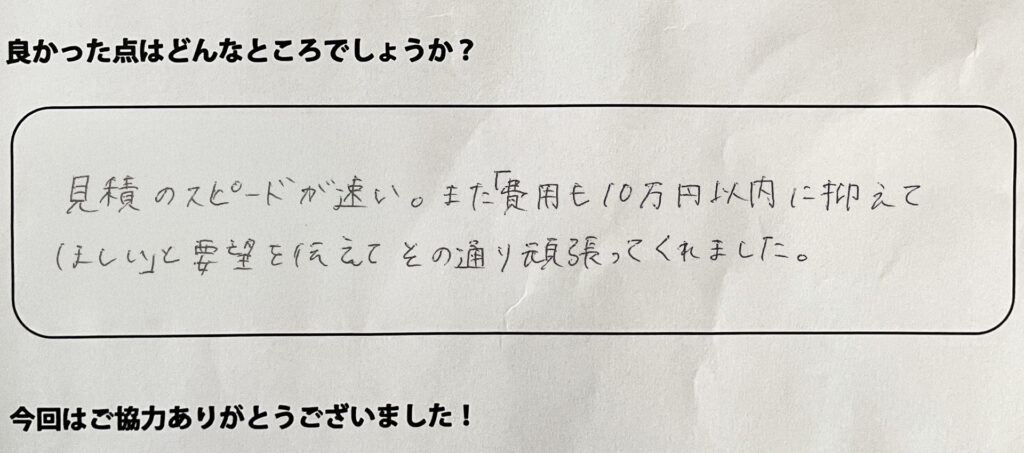 良かった点はどんなところでしょうか？
見積のスピードが速い。また「費用も10万円以内に抑えて
ほしい」と要望を伝えてその通り頑張ってくれました。
今回はご協力ありがとうございました！